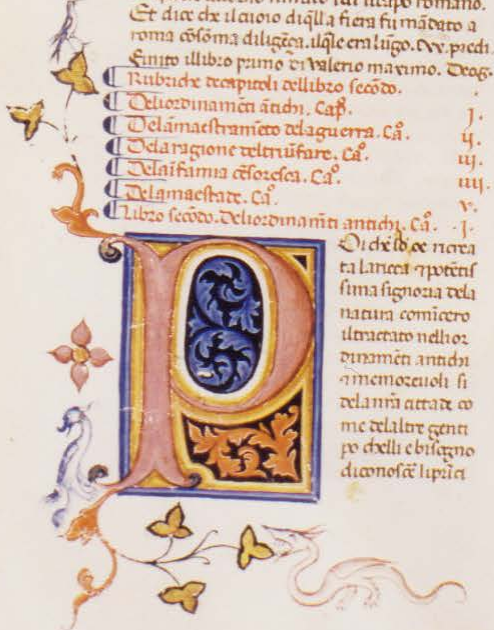 Et dice che il cuoio di q̄lla fiera fu mādato a
roma cō sōma diligēça. ilq̄le era lūgo. cxx. piedi.
Finito il libro primo di valerio maximo. Deog̃.
Rubriche de capitoli del libro secōdo.
Deli ordinamēti ātichi. Cap̃. j.
Del āmaestramēto de la guerra. Ca°. ij.
De la ragione del triūfare. Ca°. iij.
De la īfamia cēsoresca. Ca°. iiij.
De la maestade. Ca°. v.
Libro secōdo. De li ordinam̄ti antichi. Ca°. j.
P
Oi che
ta la ricca ⁊ potētis
sima signoria dela
natura comīcero
il tractato nelli or
dinamēti antichi
⁊ memorevoli si
dela nr̄a cittade co
me del altre genti
po ch elli e bisogno
di conoscē li prīci